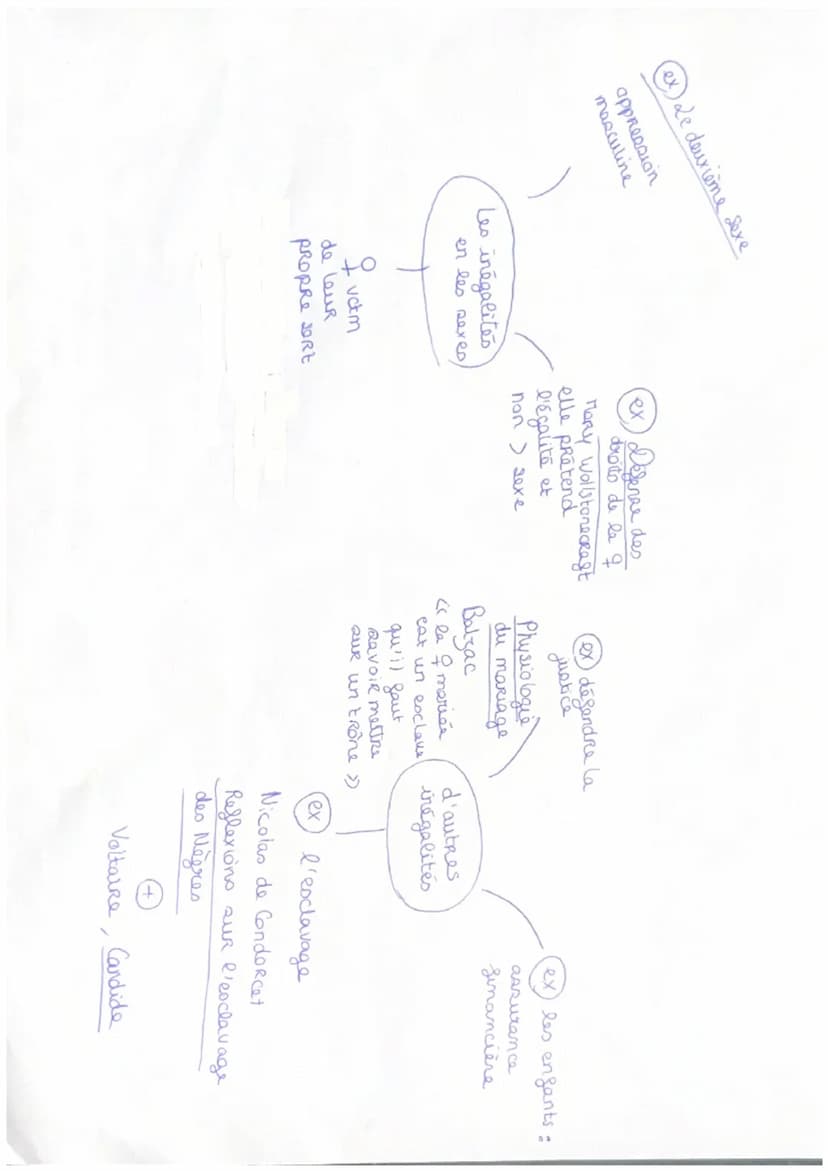 ex Le deuxième sexe
oppression
masculine
Les inégalités
en les sexes
♀ vctm
de leur
propre sort
ex Défense des
droits de la ♀
Mary Wollstonecraft
elle prétend
l'égalité et
non > sexe
ex défendre la
justice
Physiologie
du mariage
Balzac
« la ♀ mariée
est un esclave
qu'il faut
savoir mettre
sur un trône »
d'autres
inégalités
ex les enfants :
assurance
financière
ex l'esclavage
Nicolas de Condorcet
Reflexions sur l'esclavage
des Nègres
+
Voltaire, Candide